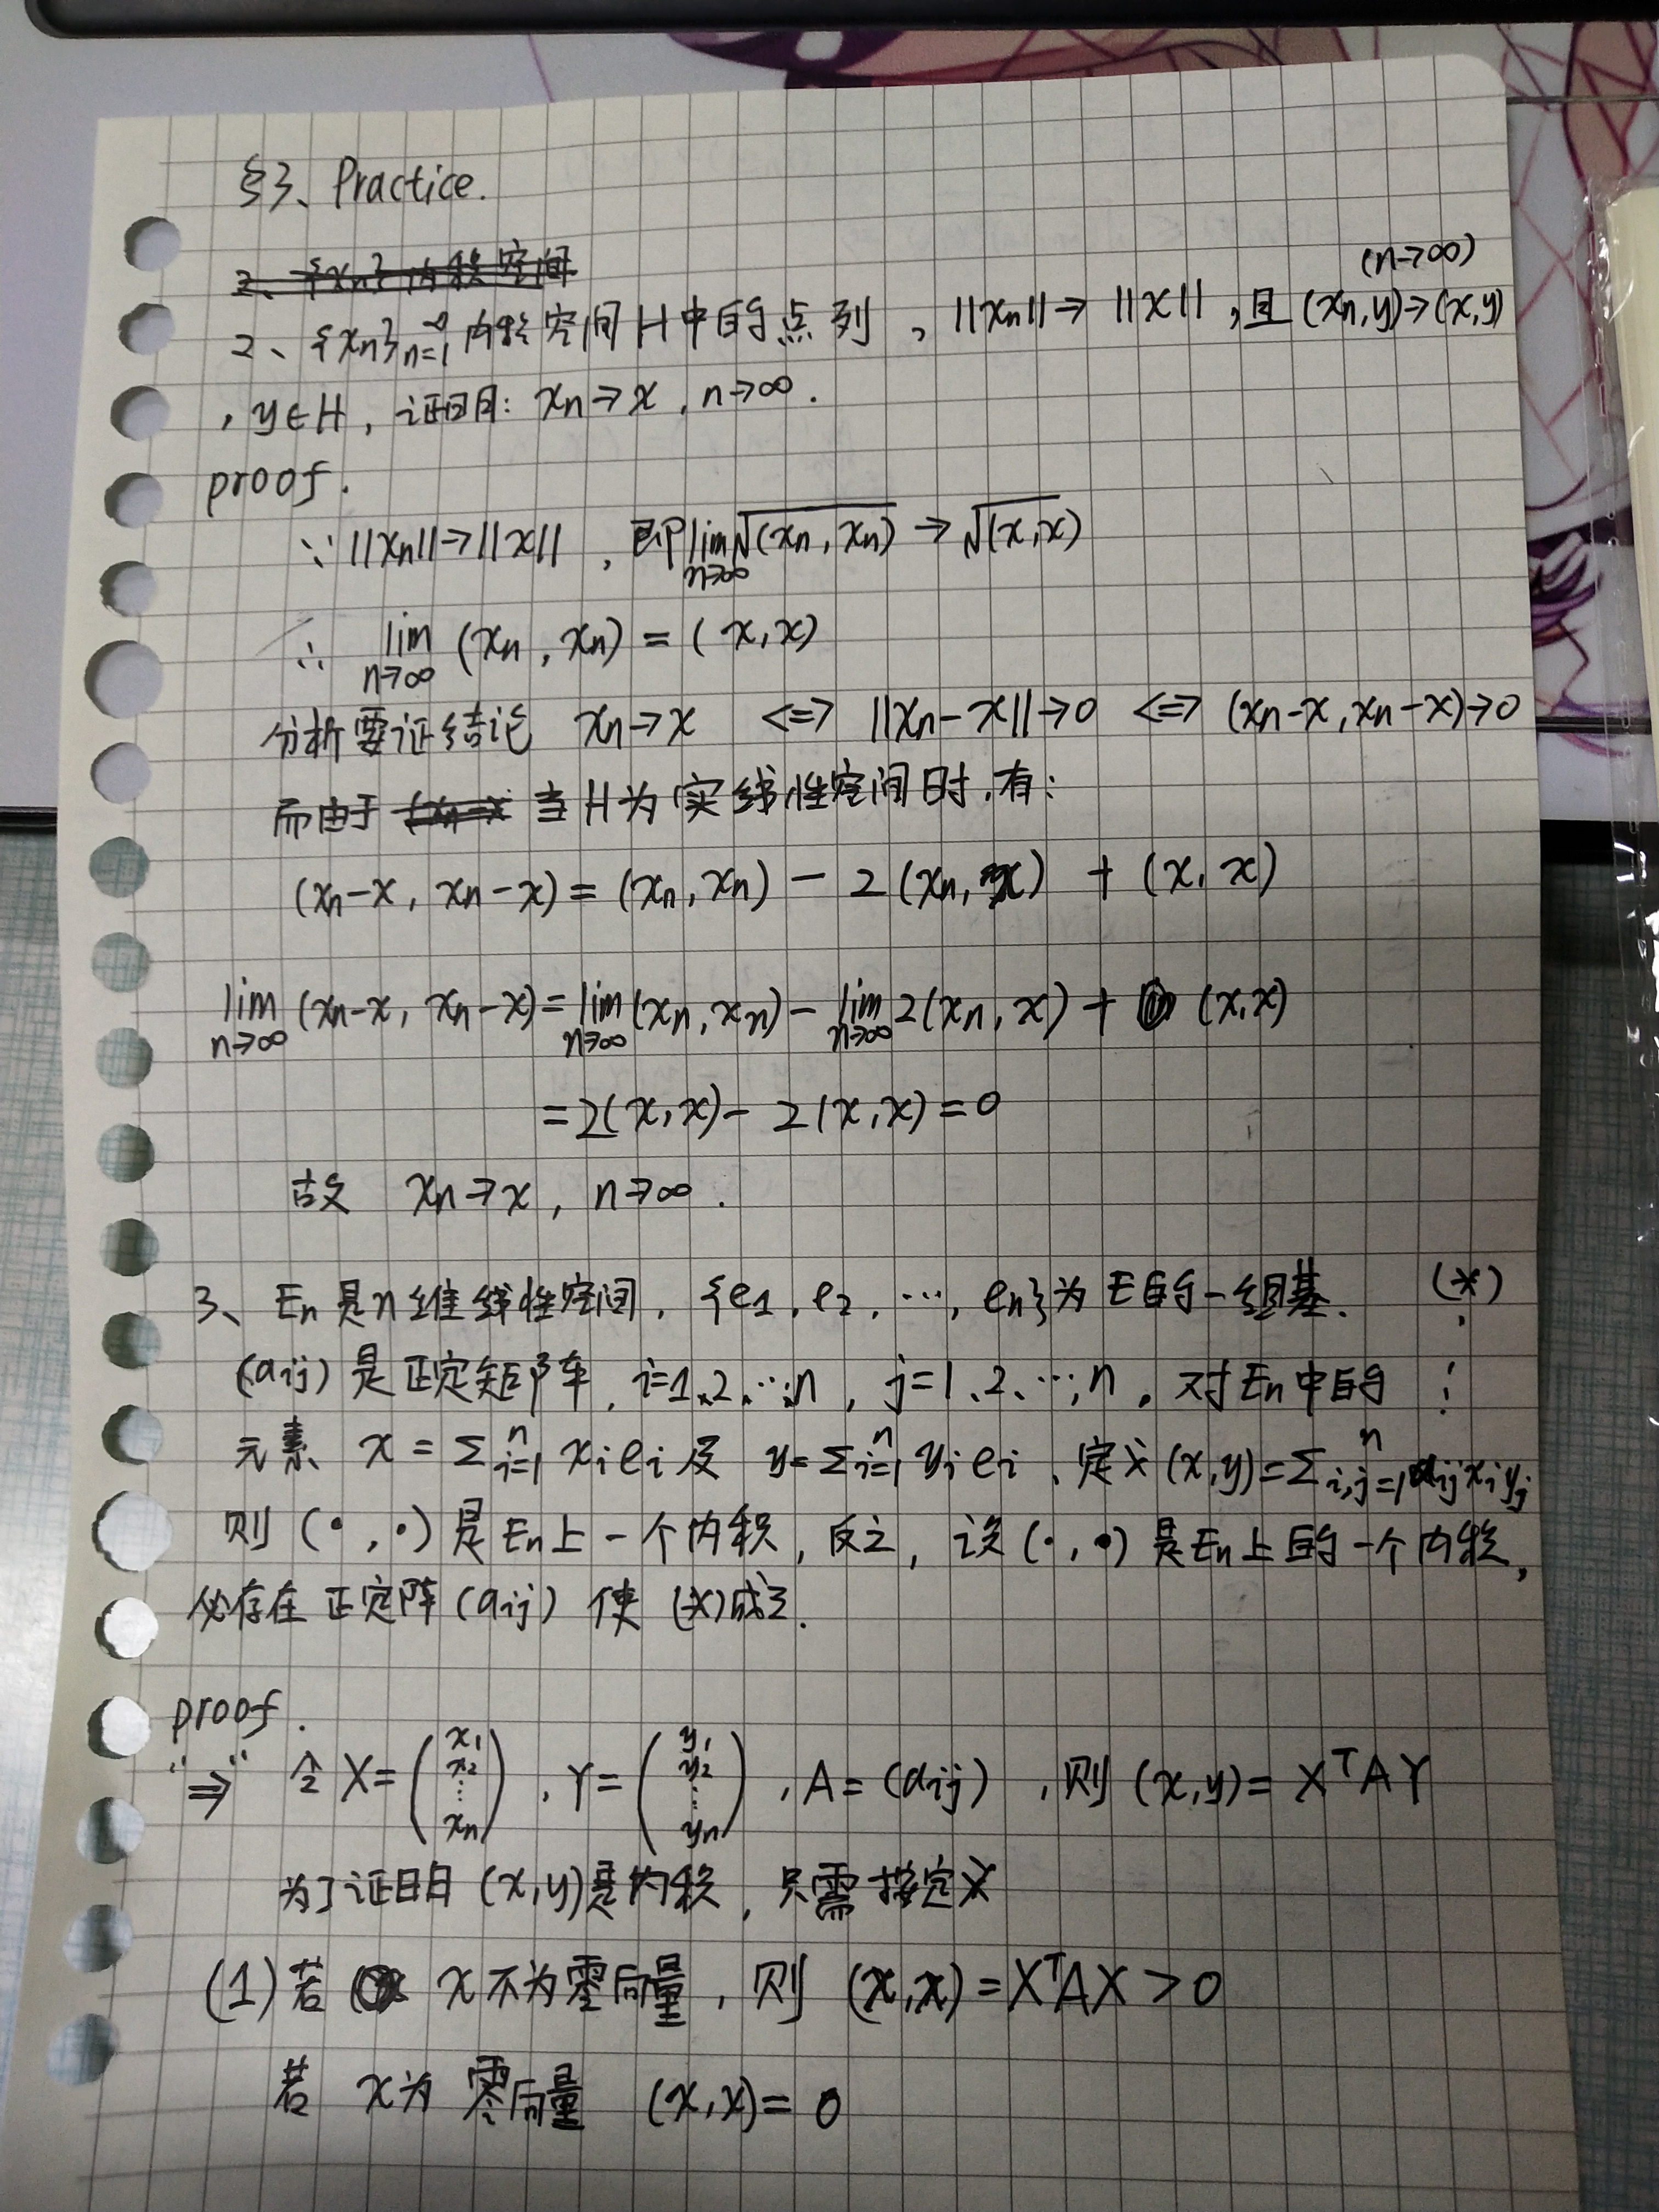 §3、Practice.
2、{xn} 内积空间
(n→∞)
2、{xn}n=1^∞ 内积空间 H 中的点列，||xn||→||x||，且 (xn,y)→(x,y)
，y∈H，证明：xn→x，n→∞.
proof.
∵ ||xn||→||x||，即 lim n→∞ √(xn,xn) → √(x,x)
∴ lim n→∞ (xn,xn) = (x,x)
分析要证结论 xn→x <=> ||xn-x||→0 <=> (xn-x,xn-x)→0
而由于 当 H 为实线性空间时，有：
(xn-x, xn-x) = (xn,xn) - 2(xn,x) + (x,x)
lim n→∞ (xn-x, xn-x) = lim n→∞ (xn,xn) - lim n→∞ 2(xn,x) + (x,x)
=2(x,x) - 2(x,x) = 0
故 xn→x，n→∞.
3、En 是 n 维线性空间，{e1, e2, …, en}为 E 的一组基. (*)
(aij) 是正定矩阵，i=1、2、…、n，j=1、2、…、n，对 En 中的
元素 x = Σ i=1^n xi ei 及 y=Σ i=1^n yi ei，定义 (x,y)=Σ i,j=1^n aij xi yj
则 (•,•) 是 En 上一个内积，反之，设 (•,•) 是 En 上的一个内积，
必存在正定阵 (aij) 使 (*)成立.
proof.
"⇒" 令 X=(x1 x2 ⋮ xn)，Y=(y1 y2 ⋮ yn)，A=(aij)，则 (x,y)= X^T A Y
为了证明 (x,y)是内积，只需按定义
(1) 若 x 不为零向量，则 (x,x) = X^T A X > 0
若 x 为 零向量 (x,x) = 0